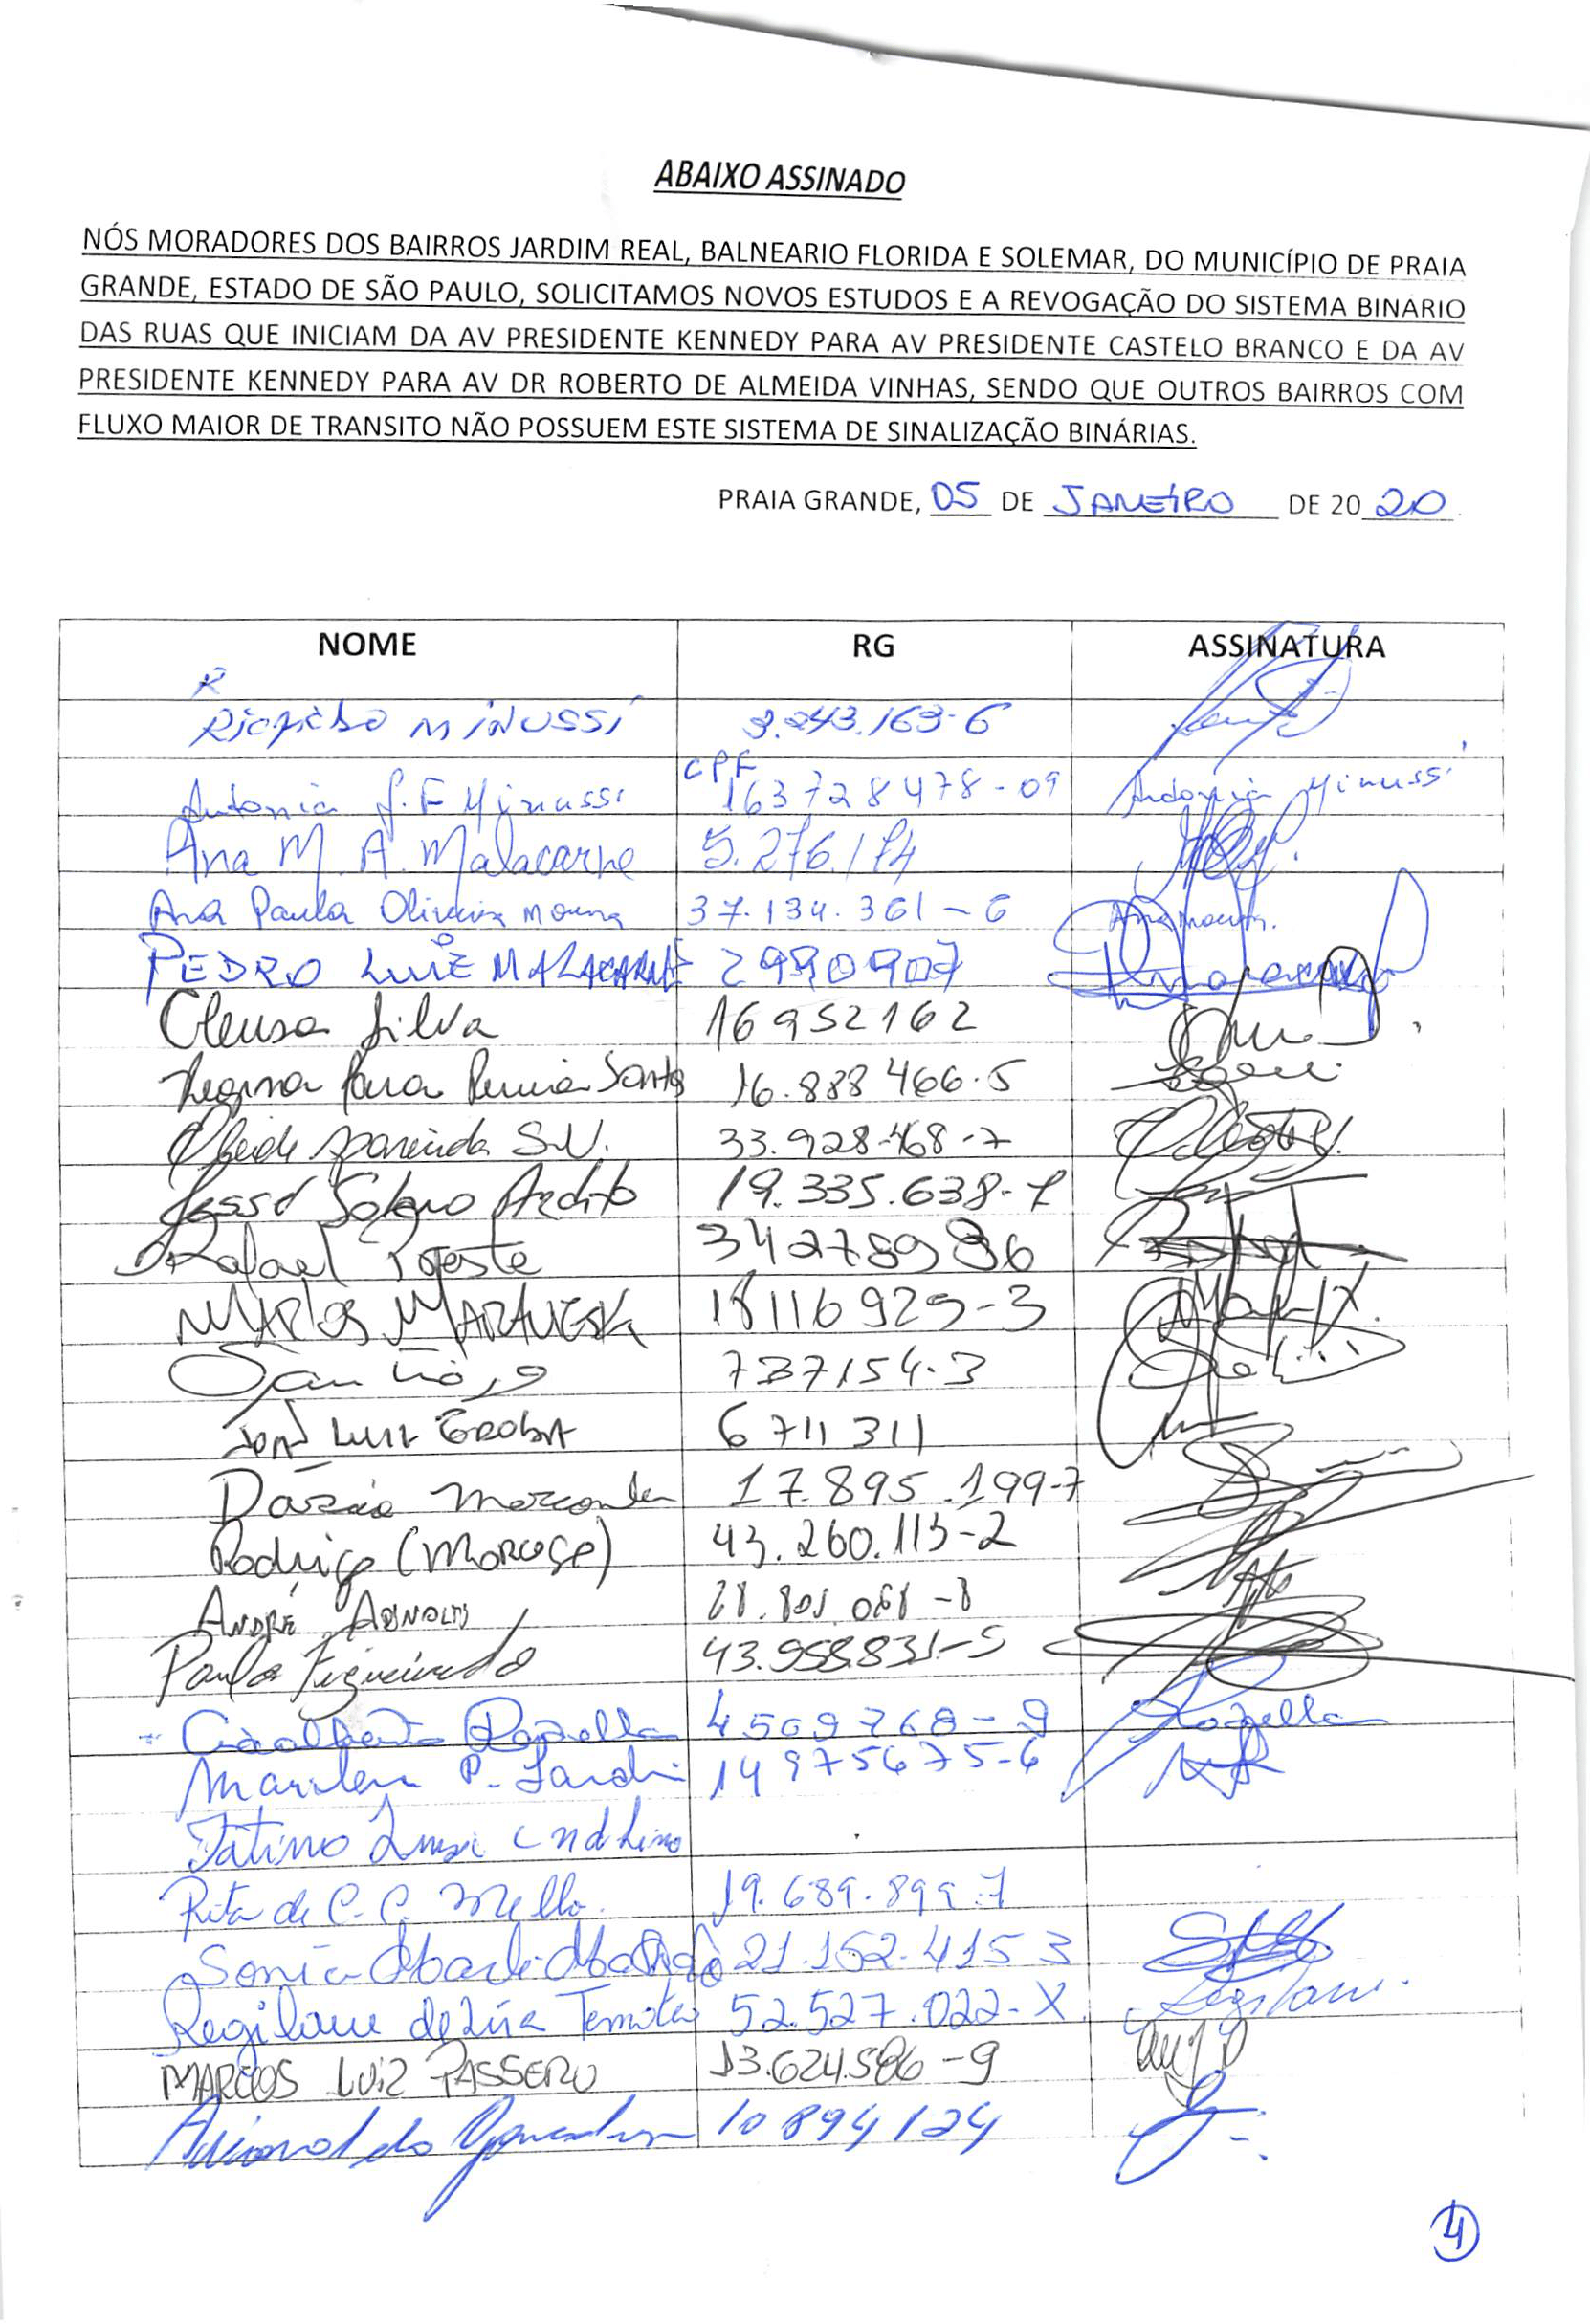 ABAIXO ASSINADO
NÓS MORADORES DOS BAIRROS JARDIM REAL, BALNEARIO FLORIDA E SOLEMAR, DO MUNICÍPIO DE PRAIA
GRANDE, ESTADO DE SÃO PAULO, SOLICITAMOS NOVOS ESTUDOS E A REVOGAÇÃO DO SISTEMA BINARIO
DAS RUAS QUE INICIAM DA AV PRESIDENTE KENNEDY PARA AV PRESIDENTE CASTELO BRANCO E DA AV
PRESIDENTE KENNEDY PARA AV DR ROBERTO DE ALMEIDA VINHAS, SENDO QUE OUTROS BAIRROS COM
FLUXO MAIOR DE TRANSITO NÃO POSSUEM ESTE SISTEMA DE SINALIZAÇÃO BINÁRIAS.
PRAIA GRANDE, 05 DE JANEIRO DE 2020
NOME RG ASSINATURA
R
RICARDO MINUSSI 3.243.163-6
CPF
Antonia F. Minussi 163728478-09 Antonia Minussi
Ana M. A. Malacarne 5.276.174
Ana Paula Oliveira Moura 37.134.361-6 Ana Moura.
PEDRO LUIZ MALACARNE 2990907
Cleusa Silva 16952162
Regina Santos 16.888466.5
Cleide Aparecida S.V. 33.928.468-7
19.335.638-7
Rafael 342789936
MARCOS 18116929-3
Santiago 737154.3
LUIZ 6711311
17.895.199-7
Rodrigo 43.260.113-2
ANDRÉ 28.801.068-8
Paulo Figueiredo 43.958.831-5
4509768-9
Marilena P. 14975675-6
Rita de C. C. Mello. 19.689.899.7
Sonia 21.152.4153
Regilane de Lira 52.527.022-X Regilane
MARCOS LUIZ PASSERO 13.624.586-9
10894124
4